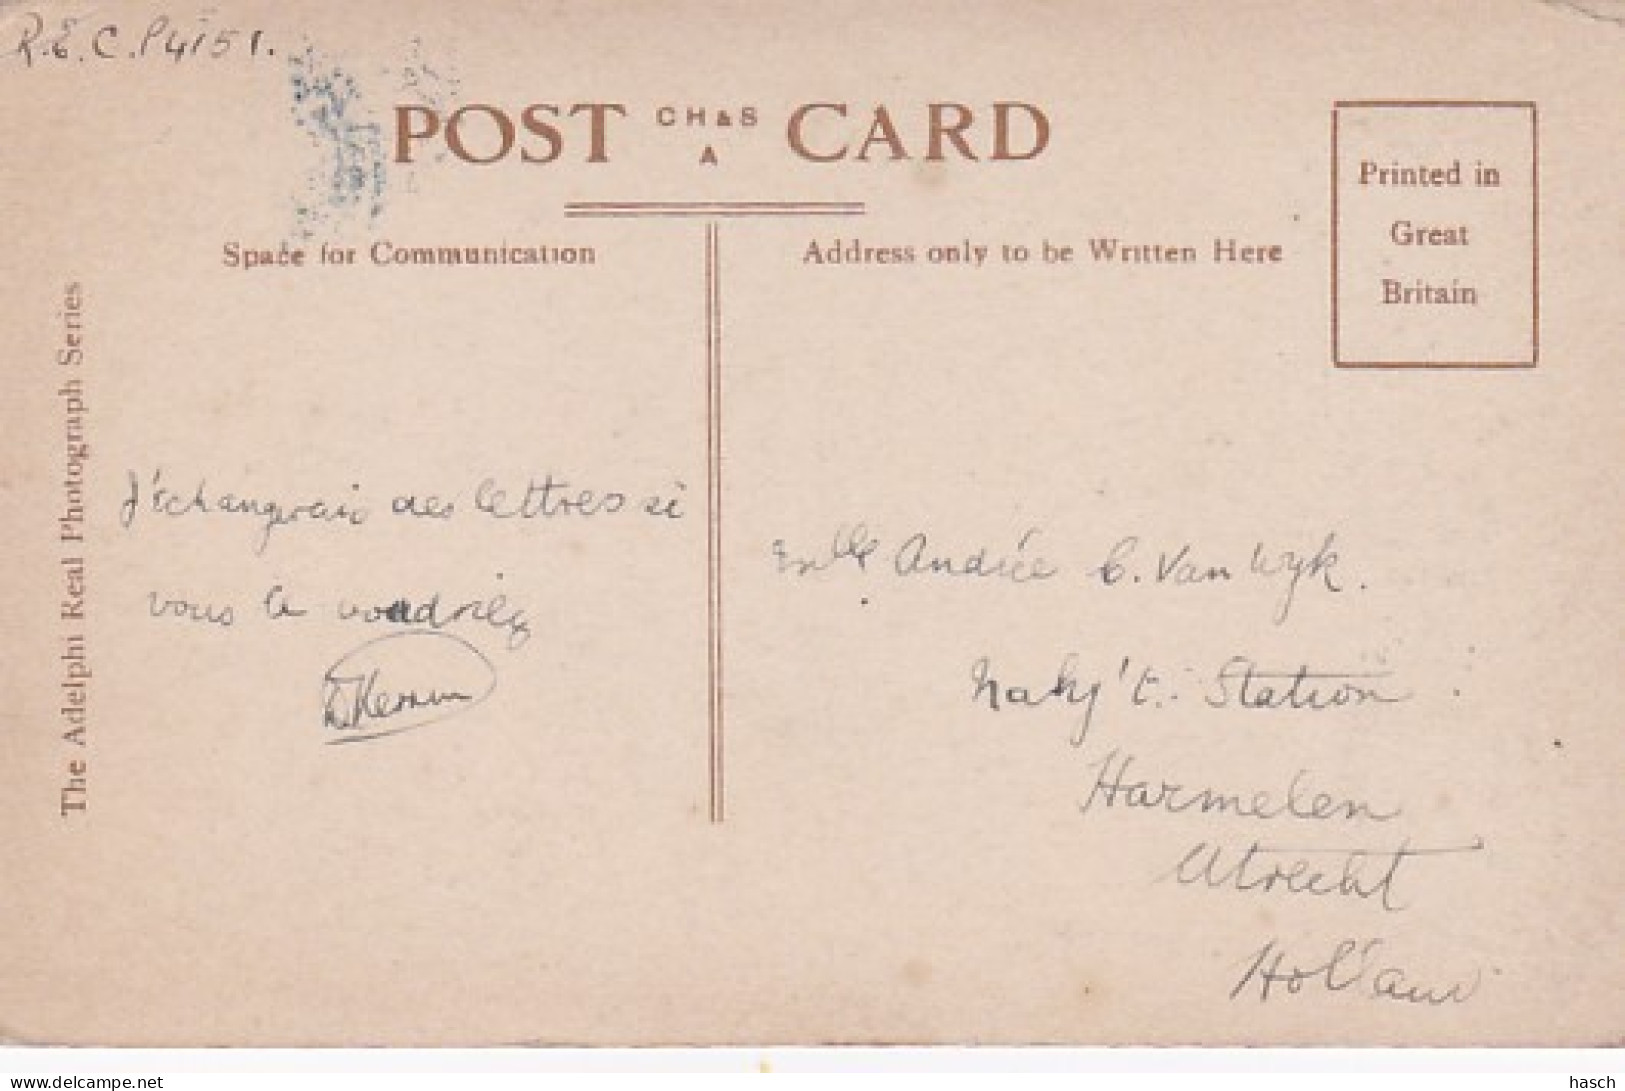 R.E.C. P4151.
POST CH&S CARD
A
Space for Communication
Address only to be Written Here
Printed in
Great
Britain
The Adelphi Real Photograph Series
J'échangerais des lettres si
vous le voudriez
Mlle Andrée C. Van Wyk.
Naby 't. Station
Harmelen
Utrecht
Holland
hasch